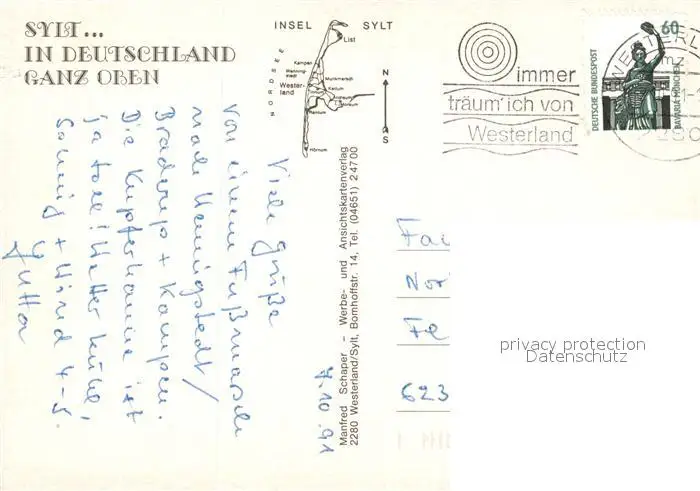 SYLT...
IN DEUTSCHLAND
GANZ OBEN
INSEL SYLT
NORDSEE
List
Kampen
Wenning-
stedt
Munkmarsch
Wester-
land
Keitum
Archsum
Morsum
Rantum
Hörnum
N
S
immer
träum' ich von
Westerland
DEUTSCHE BUNDESPOST
60
BAVARIA MÜNCHEN
WESTERL
Manfred Schaper – Werbe- und Ansichtskartenverlag
2280 Westerland/Sylt, Bomhoffstr. 14, Tel. (04651) 24700
7.10.91
Viele Grüße
von einem Fußmarsch
nach Wenningstedt/
Braderup + Kampen.
Die Kupferkanne ist
ja toll! Wetter kühl,
sonnig + Wind 4-5.
Jutta
Fa
Nor
Fe
623
privacy protection
Datenschutz